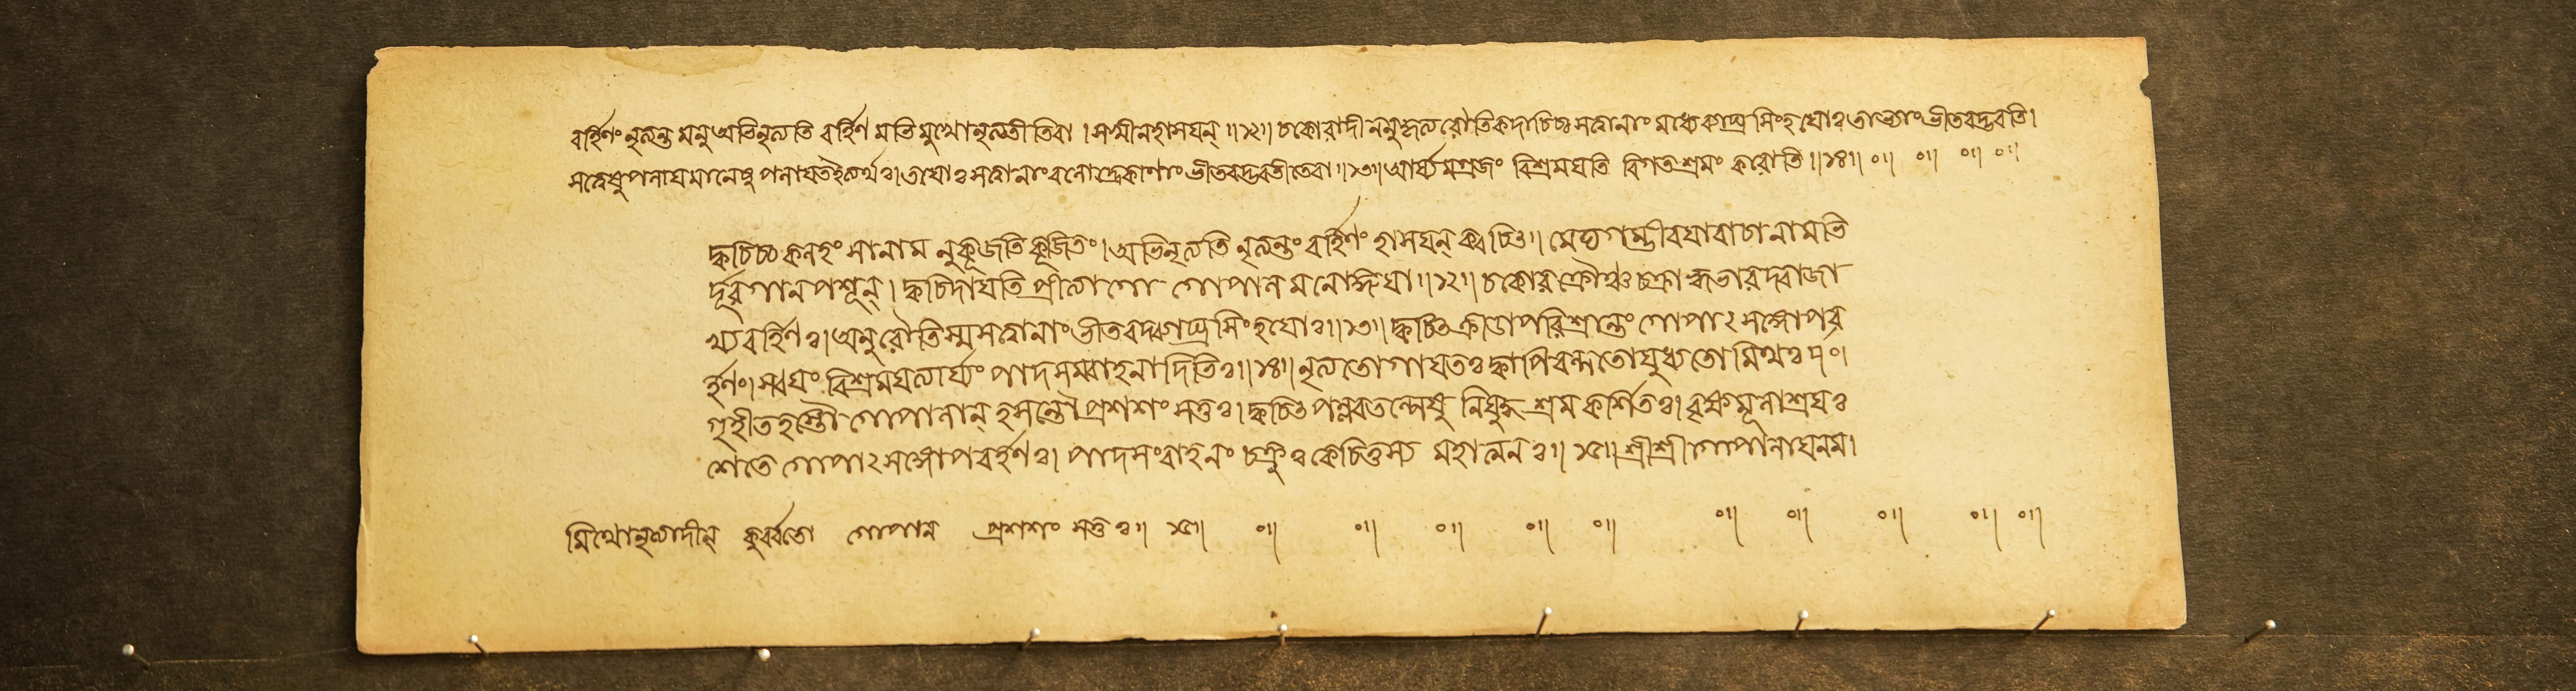 বর্হিণং নৃত্যন্ত মনু অভিনৃত্যতি বর্হিণ মভি মুখোনৃত্যতীতিবা । সখীনহাসযন্ ॥১২॥ চকোরাদী ননুকৃত্য রৌতি কদাচিচ্চ সত্ত্বানাং মধ্যে ব্যাঘ্র সিংহযোঃ তাভ্যাং ভীতবদ্ভবতি।
সত্ত্বেষুপলাযমানেষু পলাযতইত্যর্থঃ। তযোঃ সত্ত্বানাং বলোদ্রেকাণাং ভীতবদ্ভবতীত্যেবা ॥১৩॥ আর্য্যমগ্রজং বিশ্রমযতি বিগতশ্রমং করোতি ॥১৪॥ ০॥ ০॥ ০॥ ০॥
ক্বচিচ্চ কলহং সানাম নুকূজতি কূজিতং। অভিনৃত্যতি নৃত্যন্তং বর্হিণং হাসযন্ ক্বচিৎ॥ মেঘগম্ভীরযাবাচা নামভি
র্দূরগানপশূন্। ক্বচিদাহ্বযতি প্রীত্যাগো গোপাল মনোজ্ঞযা॥১২॥ চকোরক্রৌঞ্চ চক্রাহ্বভারদ্বাজা
ংশ্চ বর্হিণঃ। অনুরৌতিস্ম সত্ত্বানাং ভীতবদ্ব্যাঘ্রসিংহযোঃ॥১৩॥ ক্বচিৎ ক্রীডাপরিশ্রান্তং গোপোৎসঙ্গোপব
র্হণং। স্বযং বিশ্রমযত্যার্য্যং পাদসম্বাহনাদিভিঃ॥১৪॥ নৃত্যতোগাযতঃ ক্বাপি বল্গতোযুধ্যতো মিথঃ
গৃহীতহস্তৌ গোপালান্ হসন্তৌ প্রশশংসতুঃ। ক্বচিৎ পল্লবতল্পেষু নিযুদ্ধশ্রমকর্শিতঃ। বৃক্ষমূলাশ্রযঃ
শেতে গোপোৎসঙ্গোপবর্হণঃ। পাদসংবাহনং চক্রুঃ কেচিত্তস্য মহাত্মনঃ॥১৫॥ শ্রীশ্রীগোপালাযনম।
মিথোনৃত্যাদীন্ কুর্ব্বতো গোপাল প্রশশংসতুঃ॥ ১৫॥ ০॥ ০॥ ০॥ ০॥ ০॥ ০॥ ০॥ ০॥ ০॥ ০॥